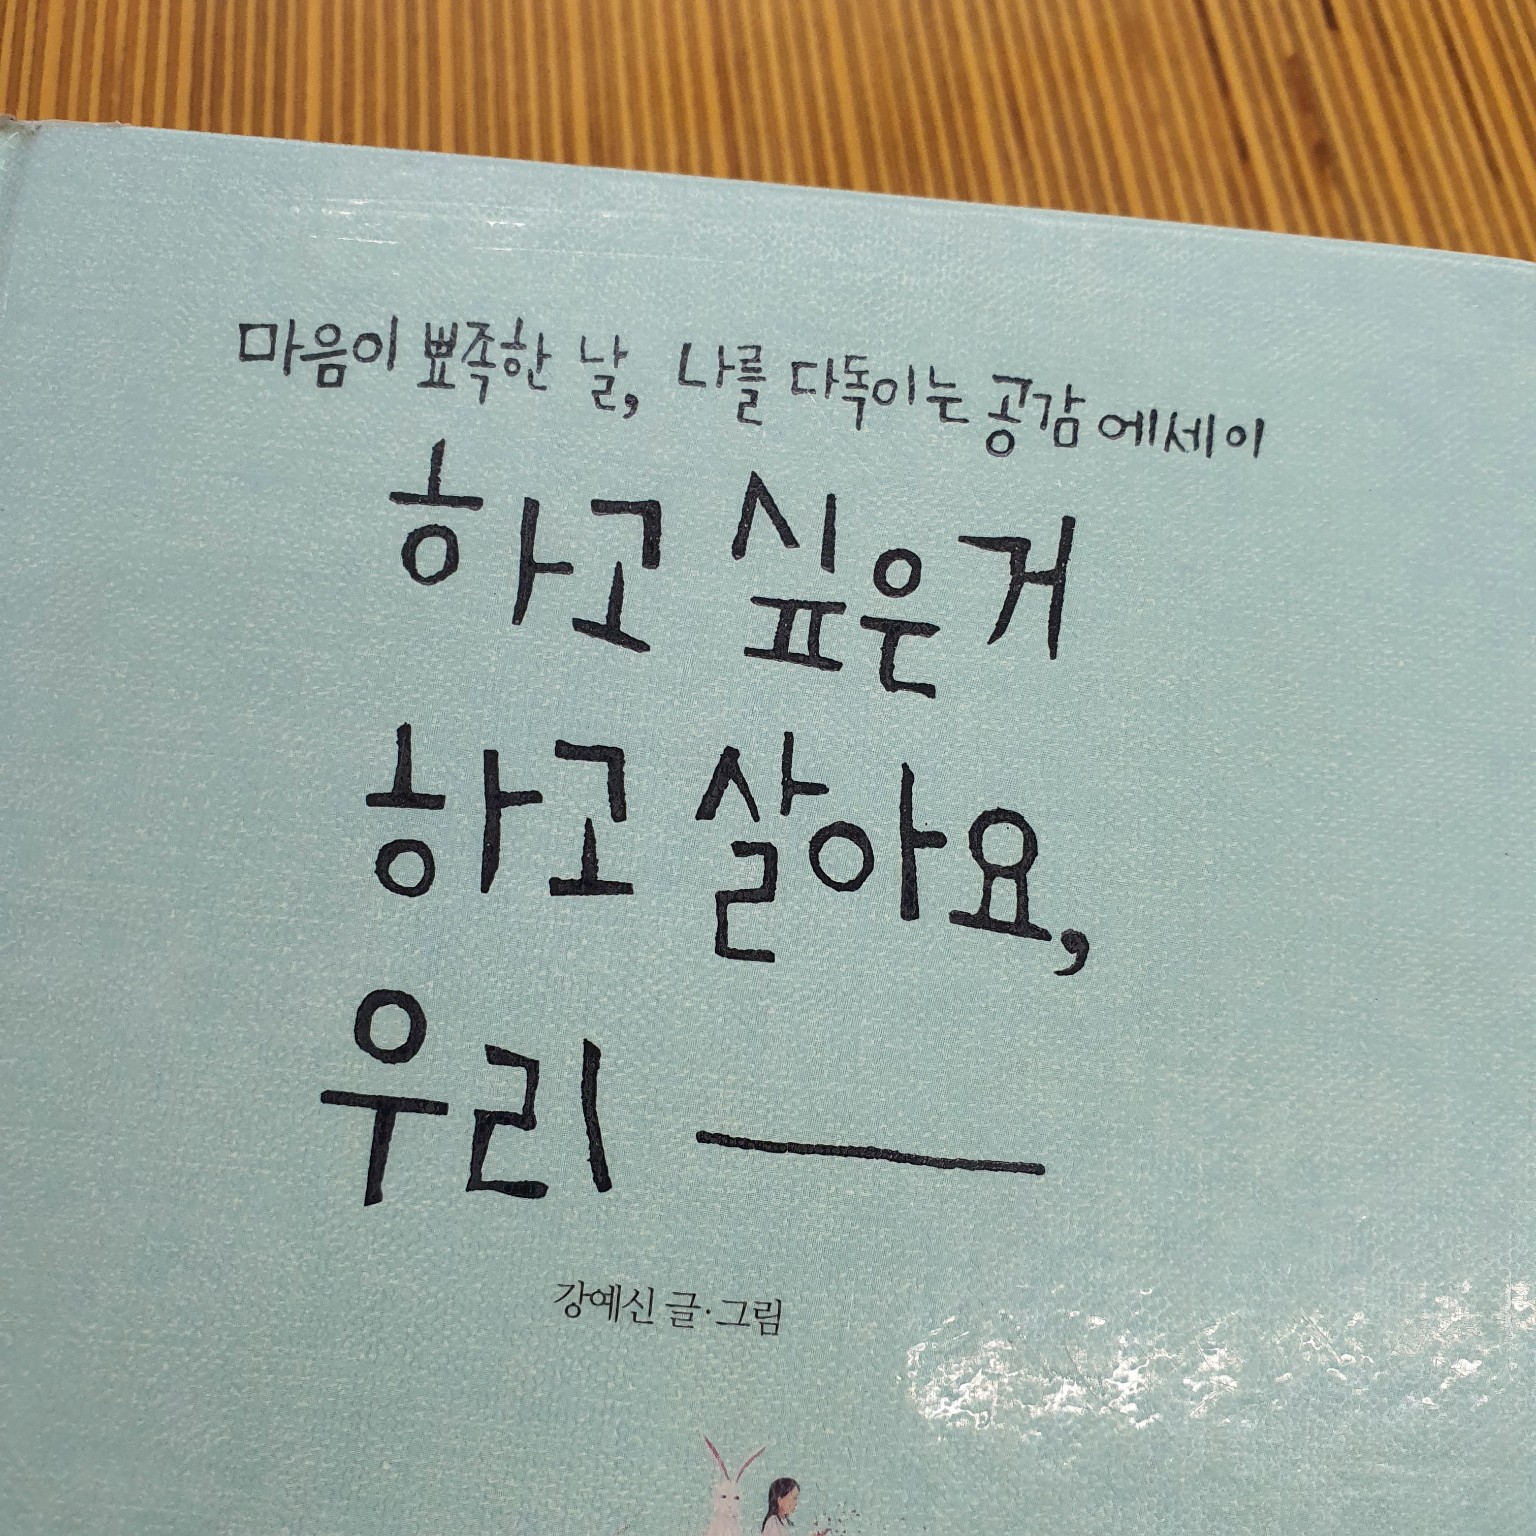 마음이 뾰족한 날, 나를 다독이는 공감 에세이
하고 싶은거
하고 살아요,
우리
강예신 글·그림